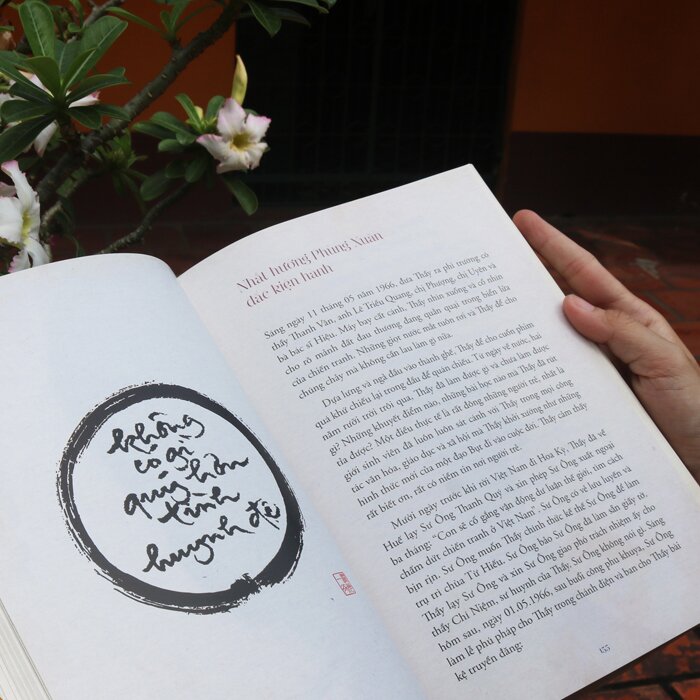 không
có gì
quý hơn
tình
huynh đệ
Nhất hướng Phùng Xuân
đắc kiện hành
Sáng ngày 11 tháng 05 năm 1966, đưa Thầy ra phi trường có
thầy Thanh Văn, anh Lê Triều Quang, chị Phượng, chị Uyên và
bà bác sĩ Hiệu. Máy bay cất cánh. Thầy nhìn xuống và cố nhìn
cho rõ mảnh đất đau thương đang quằn quại trong biển lửa
của chiến tranh. Những giọt nước mắt tuôn rơi và Thầy để cho
chúng chảy mà không cần lau làm gì nữa.
Dựa lưng và ngả đầu vào thành ghế, Thầy để cho cuốn phim
quá khứ chiếu lại trong đầu để quán chiếu. Từ ngày về nước, hai
năm rưỡi trời trôi qua, Thầy đã làm được gì và chưa làm được
gì? Những khuyết điểm nào, những bài học nào mà Thầy đã rút
tỉa được? Một điều thực tế là rất đông những người trẻ, nhất là
giới sinh viên đã luôn luôn sát cánh với Thầy trong mọi công
tác văn hóa, giáo dục và xã hội mà Thầy khởi xướng như những
hình thức mới của một đạo Bụt đi vào cuộc đời. Thầy cảm thấy
rất biết ơn, rất có niềm tin nơi người trẻ.
Mười ngày trước khi rời Việt Nam đi Hoa Kỳ, Thầy đã về
Huế lạy Sư Ông Thanh Quý và xin phép Sư Ông xuất ngoại
ba tháng: “Con sẽ cố gắng vận động dư luận thế giới, tìm cách
chấm dứt chiến tranh ở Việt Nam”. Sư Ông có vẻ lưu luyến và
bịn rịn. Sư Ông muốn Thầy chính thức kế thế Sư Ông để làm
trụ trì chùa Từ Hiếu. Sư Ông bảo Sư Ông đã làm sẵn giấy tờ.
Thầy lạy Sư Ông và xin Sư Ông giao phó trách nhiệm ấy cho
thầy Chí Niệm, sư huynh của Thầy. Sư Ông không nói gì. Sáng
hôm sau, ngày 01.05.1966, sau buổi công phu khuya, Sư Ông
làm lễ phú pháp cho Thầy trong chánh điện và ban cho Thầy bài
kệ truyền đăng:
155